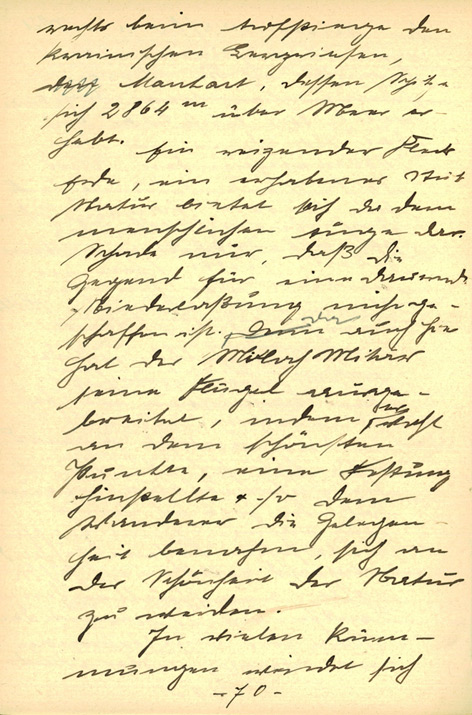 rechts beim Aufstiege den
krainischen Bergriesen,
den Mantart, dessen Spitze
sich 2864 m über Meer er-
hebt.
Ein reizender Fleck
Erde, ein erhabenes Stück
Natur bietet sich da dem
menschlichen Auge dar.
Schade nur, daß die
Gegend für eine dauernde
Niederlaßung nicht ge-
schaffen ist. Denn auch hier
hat der Moloch Militär
seine Flügel ausge-
breitet, indem er
an dem schönsten
Punkte, eine Festung
hinstellte & so dem
Wanderer die Gelegen-
heit benahm, sich an
der Schönheit der Natur
zu weiden.
In vielen Krüm-
mungen windet sich
- 70 -